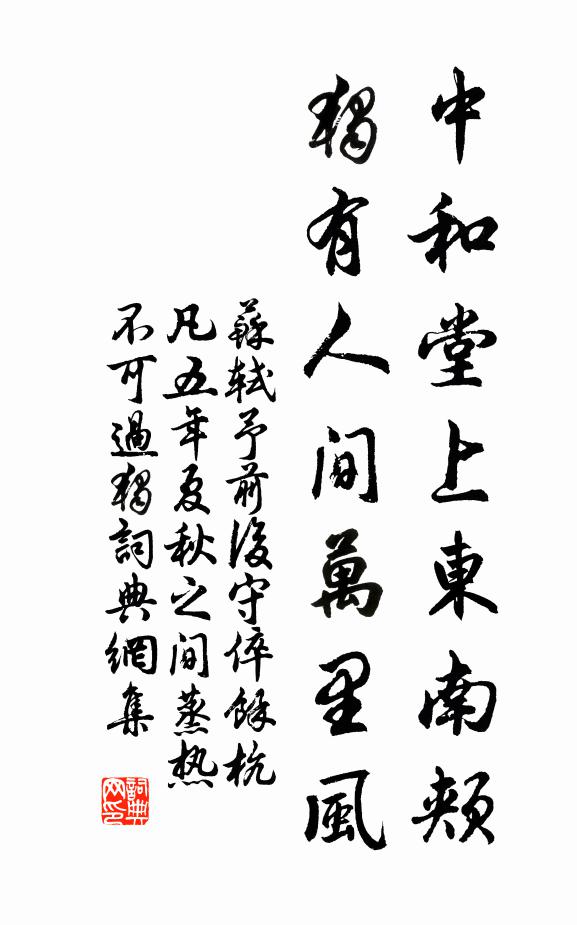 中和堂上東南頰
獨有人間萬里風
蘇軾予前後守倅餘杭
凡五年夏秋之間蒸熱
不可過獨詞典網集
詞典网印